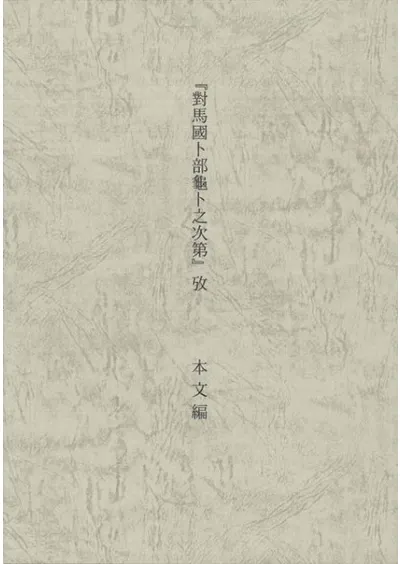 『對馬國卜部龜卜之次第』攷
本文編